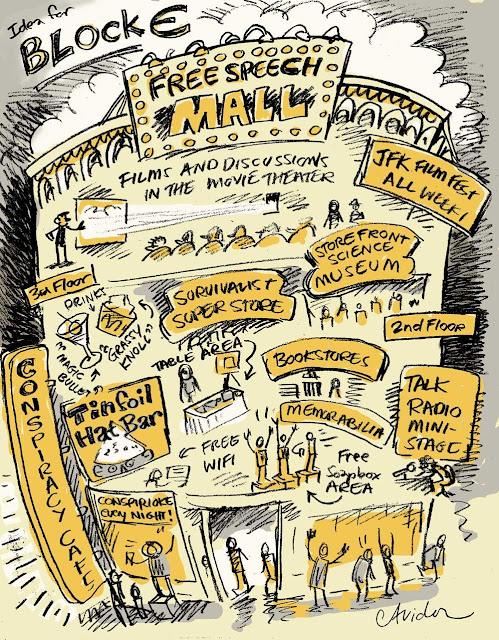 Idea for
BLOCK E
FREE SPEECH
MALL
FILMS AND DISCUSSIONS
IN THE MOVIE THEATER
JFK FILM FEST
ALL WEEK!
STOREFRONT
SCIENCE
MUSEUM
3rd Floor
SURVIVALIST
SUPER STORE
2nd FLOOR
DRINKS
"GRASSY
KNOLL"
"MAGIC
BULLET"
TABLE AREA
BOOKSTORES
MEMORABILIA
TALK
RADIO
MINI-
STAGE
CONSPIRACY CAFE
Tinfoil
Hat Bar
FREE
WIFI
Free
Soapbox
AREA
CONSPIRIOKE
EVERY NIGHT!
Avidor